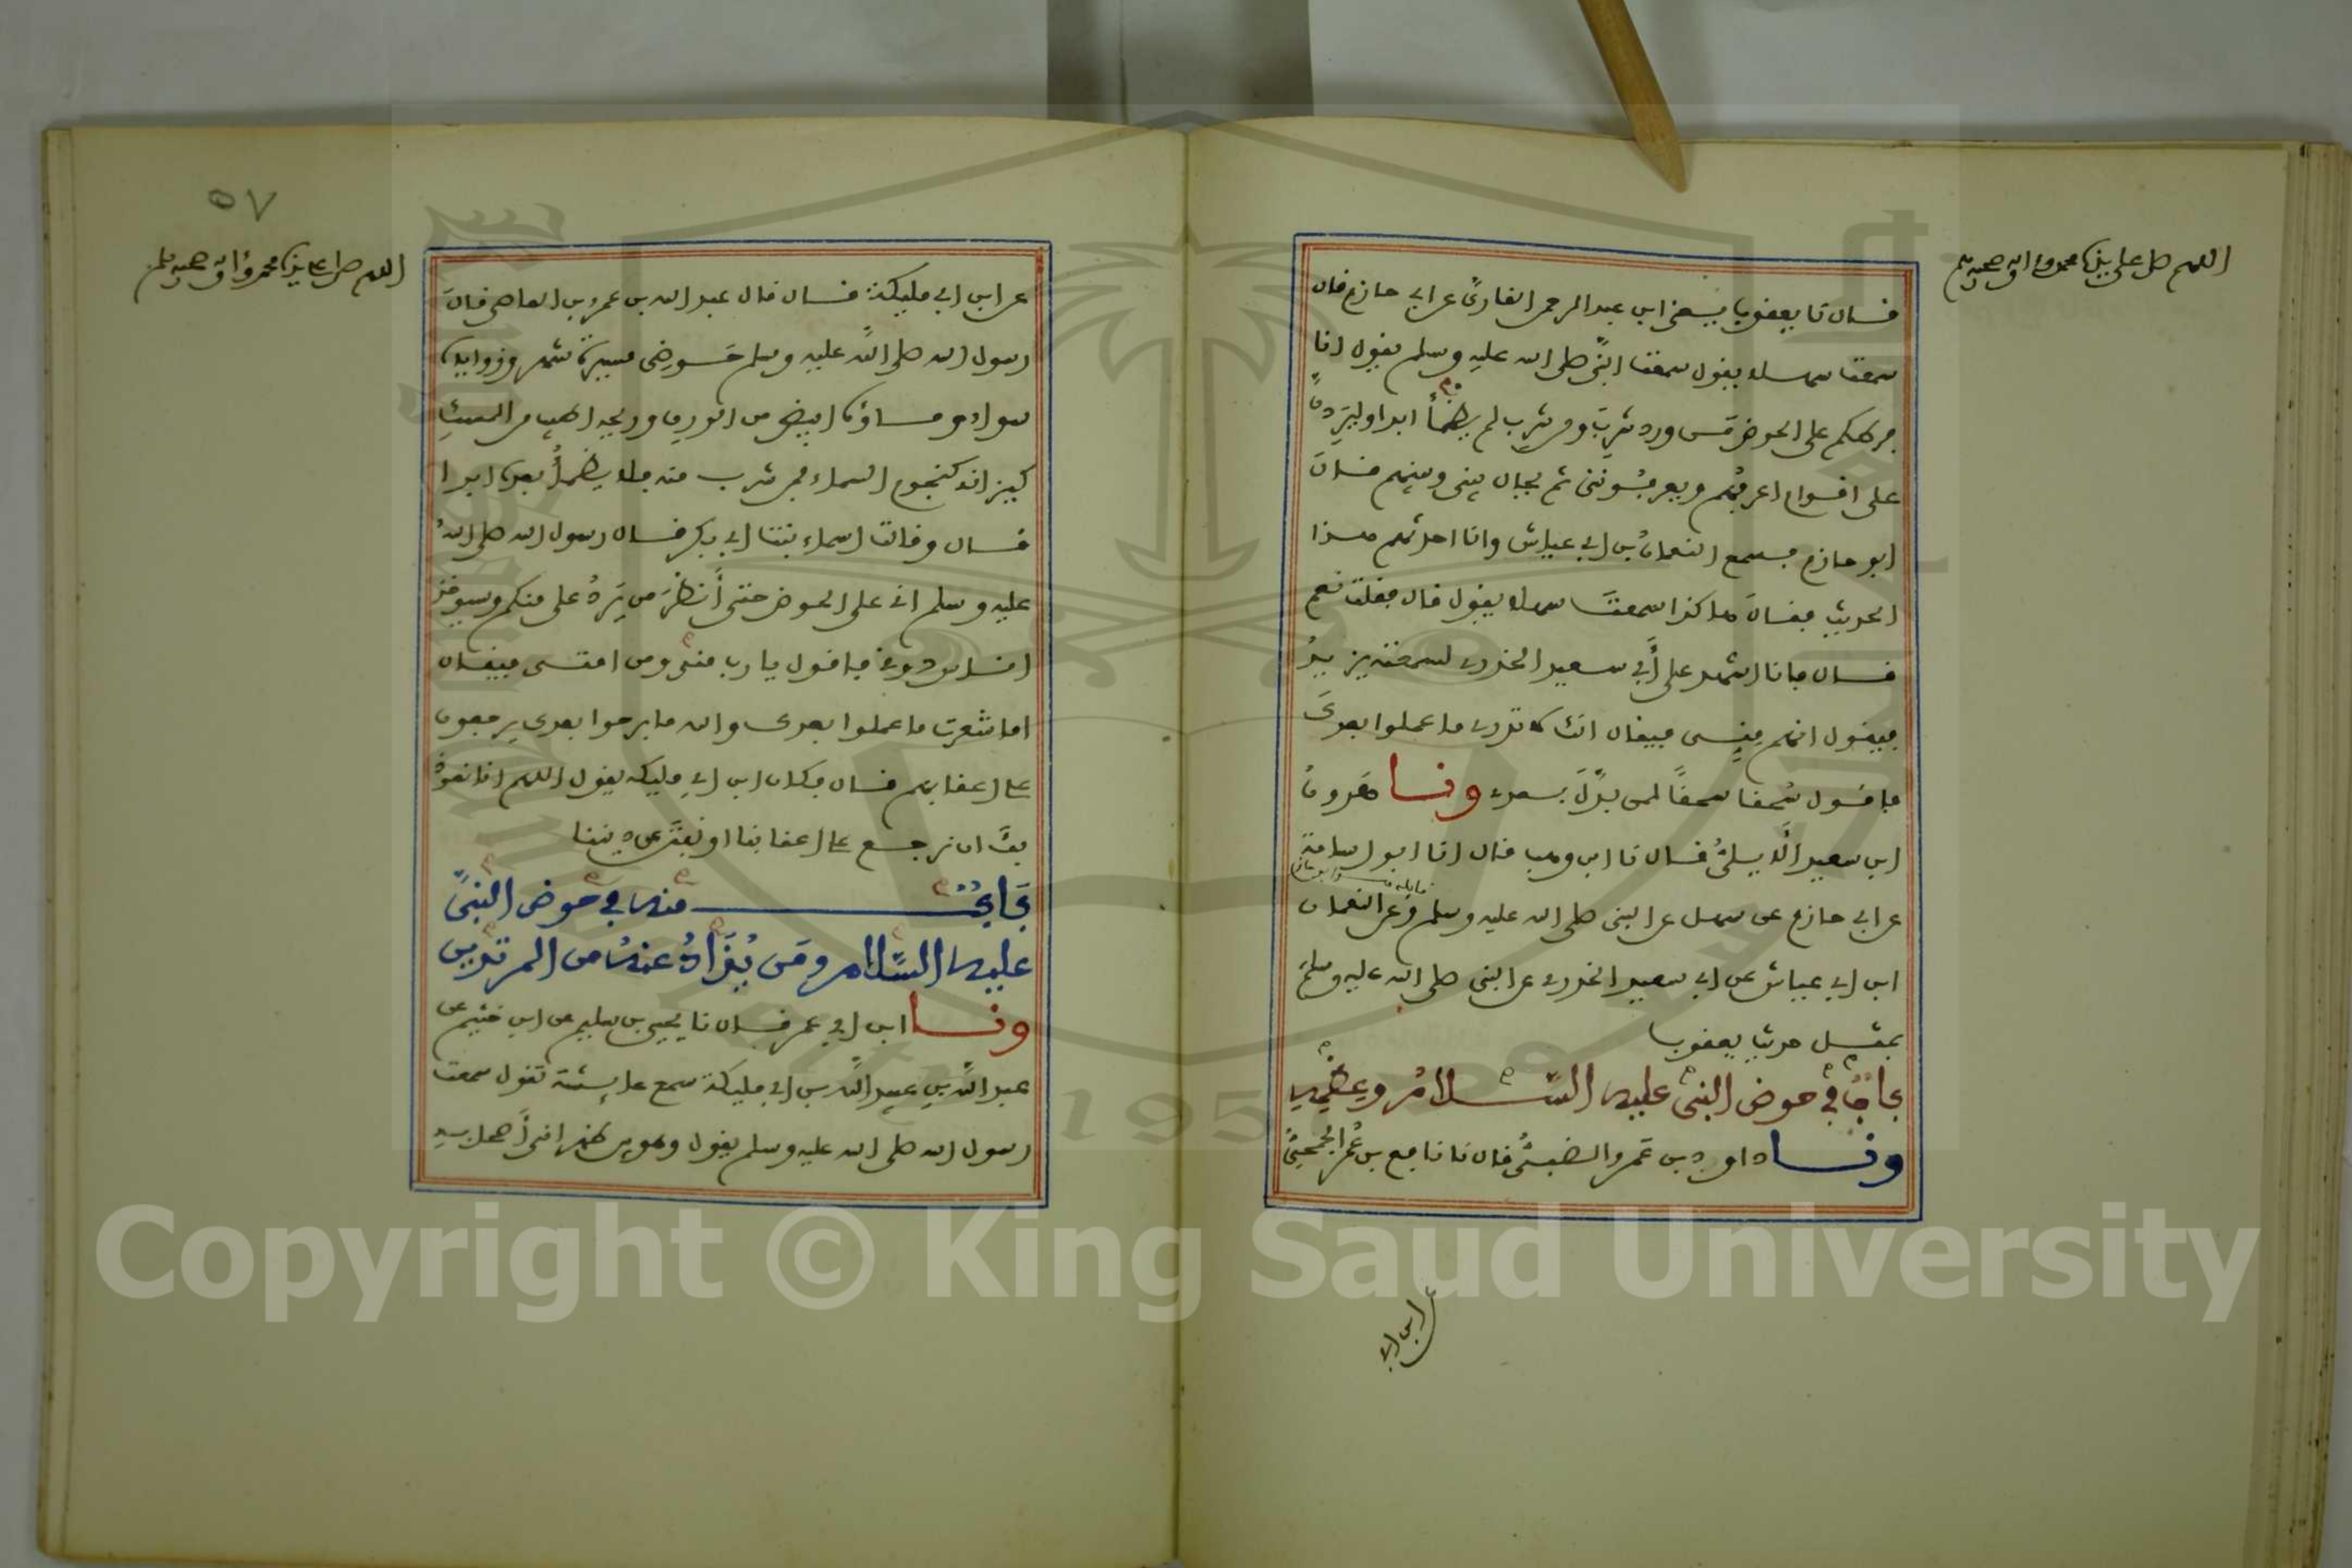 اللهم صل على سيدنا محمد وءاله وصحبه وسلم
قال نا يعقوب يعني ابن عبد الرحمن القاري عن ابي حازم قال
سمعت سهلا يقول سمعت النبي صلى الله عليه وسلم يقول انا
فرطكم على الحوض من ورد شرب ومن شرب لم يظمأ ابدا وليردن
على اقوام اعرفهم ويعرفونني ثم يحال بيني وبينهم قال
ابو حازم فسمع النعمان بن ابي عياش وانا احدثهم هذا
الحديث فقال هاكذا سمعت سهلا يقول قال فقلت نعم
قال فانا اشهد على أبي سعيد الخدري لسمعته يزيد
فيقول انهم مني فيقال انك لا تدري ما عملوا بعدك
فاقول سحقا سحقا لمن بدل بعدي ونا هرون
ابن سعيد الأيلي قال نا ابن وهب قال انا ابو اسامة
عن ابي حازم عن سهل عن النبي صلى الله عليه وسلم وعن النعمان
ابن ابي عياش عن ابي سعيد الخدري عن النبي صلى الله عليه وسلم
بمثل حديث يعقوب
باب في حوض النبي عليه السلام وعظمه
ونا داود بن عمرو الضبي قال نا نافع بن عمر الجمحي
عن ابن ابي
٥٧
اللهم صل على سيدنا محمد وءاله وصحبه وسلم
عن ابن ابي مليكة قال قال عبد الله بن عمرو بن العاصي قال
رسول الله صلى الله عليه وسلم حوضي مسيرة شهر وزواياه
سواء وماؤه ابيض من الورق وريحه اطيب من المسك
كيزانه كنجوم السماء فمن شرب منه فلا يظمأ بعده ابدا
قال وقالت اسماء بنت ابي بكر قال رسول الله صلى الله
عليه وسلم اني على الحوض حتى أنظر من يرد على منكم وسيوخذ
اناس دوني فاقول يا رب مني ومن امتي فيقال
اما شعرت ما عملوا بعدك والله ما برحوا بعدك يرجعون
على اعقابهم قال فكان ابن ابي مليكة يقول اللهم انا نعوذ
بك ان نرجع على اعقابنا او نفتن عن ديننا
باب منه في حوض النبي
عليه السلام ومن يذاد عنه من المرتدين
ونا ابن ابي عمر قال نا يحيى بن سليم عن ابن خثيم عن
عبد الله بن عبيد الله بن ابي مليكة سمع عايشة تقول سمعت
رسول الله صلى الله عليه وسلم يقول وهو بين ظهراني أصحابه
Copyright © King Saud University
1957